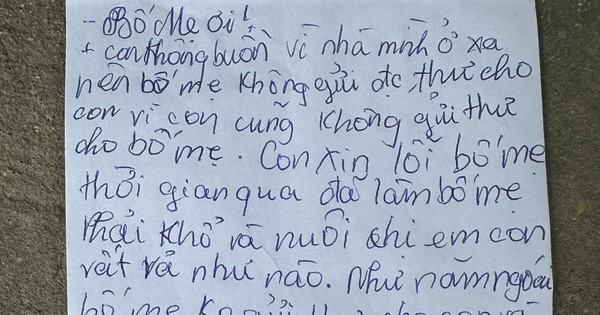 - Bố Mẹ ơi!
+ con không buồn vì nhà mình ở xa
nên bố mẹ không gửi đc thư cho
con vì con cũng không gửi thư
cho bố mẹ. Con xin lỗi bố mẹ
thời gian qua đã làm bố mẹ
phải khổ và nuôi chị em con
vất vả như nào. Như năm ngoái
bố mẹ ko gửi